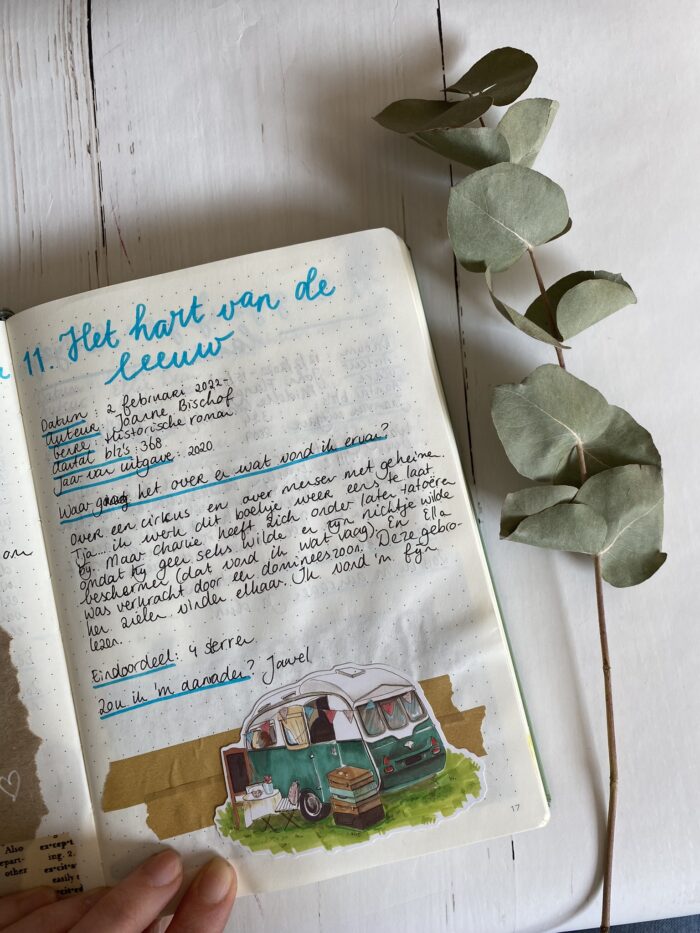 11. Het hart van de
leeuw
Datum: 2 februari 2022-
Auteur: Joanne Bischof
Genre: Historische roman
Aantal blz's: 368
Jaar van uitgave: 2020
Waar ging het over en wat vond ik ervan?
Over een cirkus en over mensen met geheimen.
Tja... ik werk dit boekje weer eens te laat
bij. Maar Charlie heeft zich onder laten tatoëren
omdat hij geen seks wilde en zijn nichtje wilde
beschermen (dat vond ik wat vaag). En Ella
was verkracht door een domineeszoon. Deze gebro-
ken zielen vinden elkaar. Ik vond 'm fijn
lezen.
Eindoordeel: 4 sterren.
Zou ik 'm aanraden? Jawel
17
om
Also
except
depart-
ing. 2.
other
easily